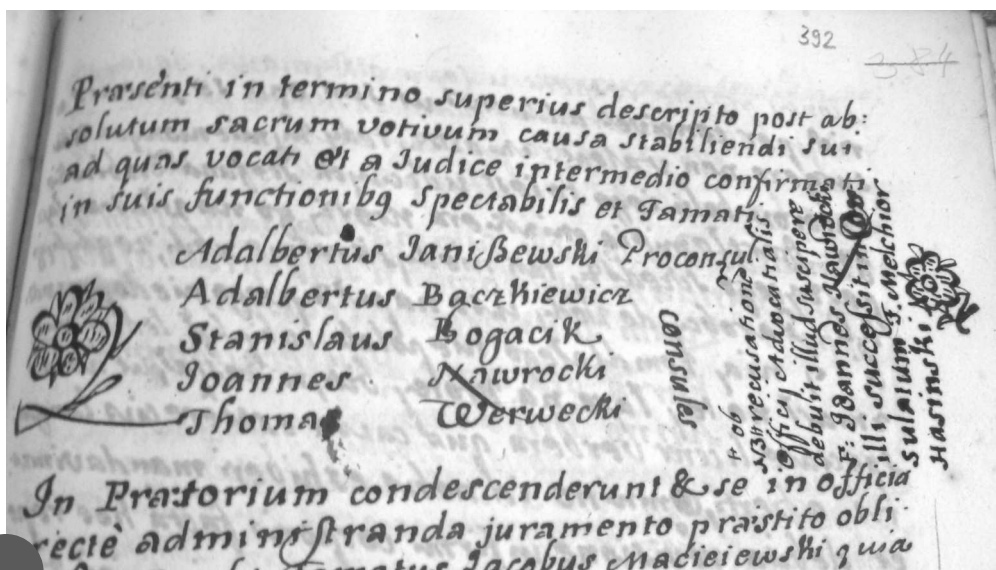 392
384
Præsenti in termino superius descripto post ab:
solutum sacrum votivum causa stabiliendi sui
ad quas vocati et a Iudice intermedio confirmati
in suis functionibg Spectabilis et Famatis
Adalbertus Ianißewski Proconsul.
Adalbertus Bączkiewicz
Stanislaus Bogacik
Ioannes Nawrocki
Thomas Werwecki
consules
ob recusatione
officy Advocatialis
debuit illud suscipere
F: Ioannes Nawrocki
illi successit in
Sulaium F. Melchior
Hasinski
In Prætorium condescenderunt & se in officia
recte administranda juramento præstito obli
Iacobus Macieiewski quia